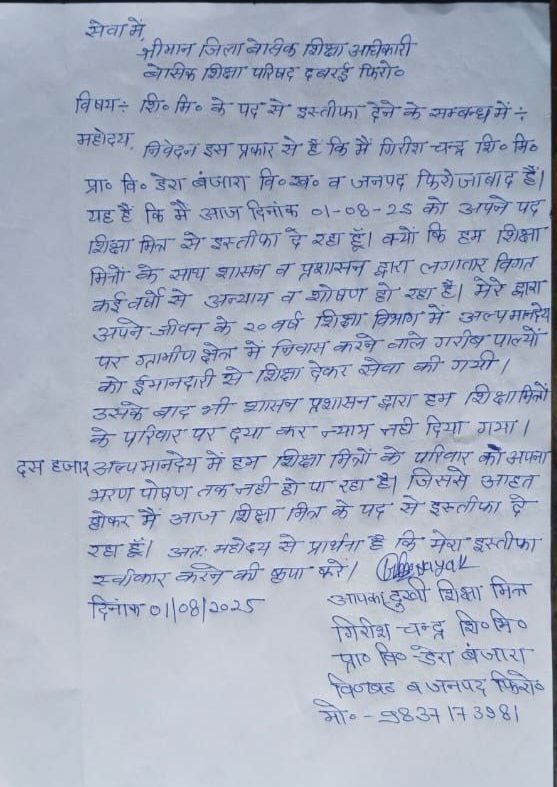 सेवा में,
श्रीमान जिला बेसिक शिक्षा अधिकारी
बेसिक शिक्षा परिषद दबरई फिरो०
विषय÷ शि० मि० के पद से इस्तीफा देने के सम्बन्ध में ÷
महोदय, निवेदन इस प्रकार से है कि मैं गिरीश चन्द्र शि० मि०
प्रा० वि० डेरा बंजारा वि० ख० व जनपद फिरोजाबाद हूँ।
यह है कि मैं आज दिनांक 01-08-25 को अपने पद
शिक्षा मित्र से इस्तीफा दे रहा हूँ। क्यों कि हम शिक्षा
मित्रों के साथ शासन व प्रशासन द्वारा लगातार विगत
कई वर्षों से अन्याय व शोषण हो रहा है। मेरे द्वारा
अपने जीवन के २० वर्ष शिक्षा विभाग में अल्पमानदेय
पर ग्रामीण क्षेत्र में निवास करने वाले गरीब पाल्यों
को ईमानदारी से शिक्षा देकर सेवा की गयी।
उसके बाद भी शासन प्रशासन द्वारा हम शिक्षा मित्रों
के परिवार पर दया कर न्याय नही दिया गया।
दस हजार अल्पमानदेय में हम शिक्षा मित्रों के परिवार का अपना
भरण पोषण तक नही हो पा रहा है। जिससे आहत
होकर मैं आज शिक्षा मित्र के पद से इस्तीफा दे
रहा हूँ। अतः महोदय से प्रार्थना है कि मेरा इस्तीफा
स्वीकार करने की कृपा करे।
दिनांक 01/08/2025
आपका दुखी शिक्षा मित्र
गिरीश चन्द्र शि० मि०
प्रा० वि० डेरा बंजारा
व जनपद फिरो०
मो०-9837173981